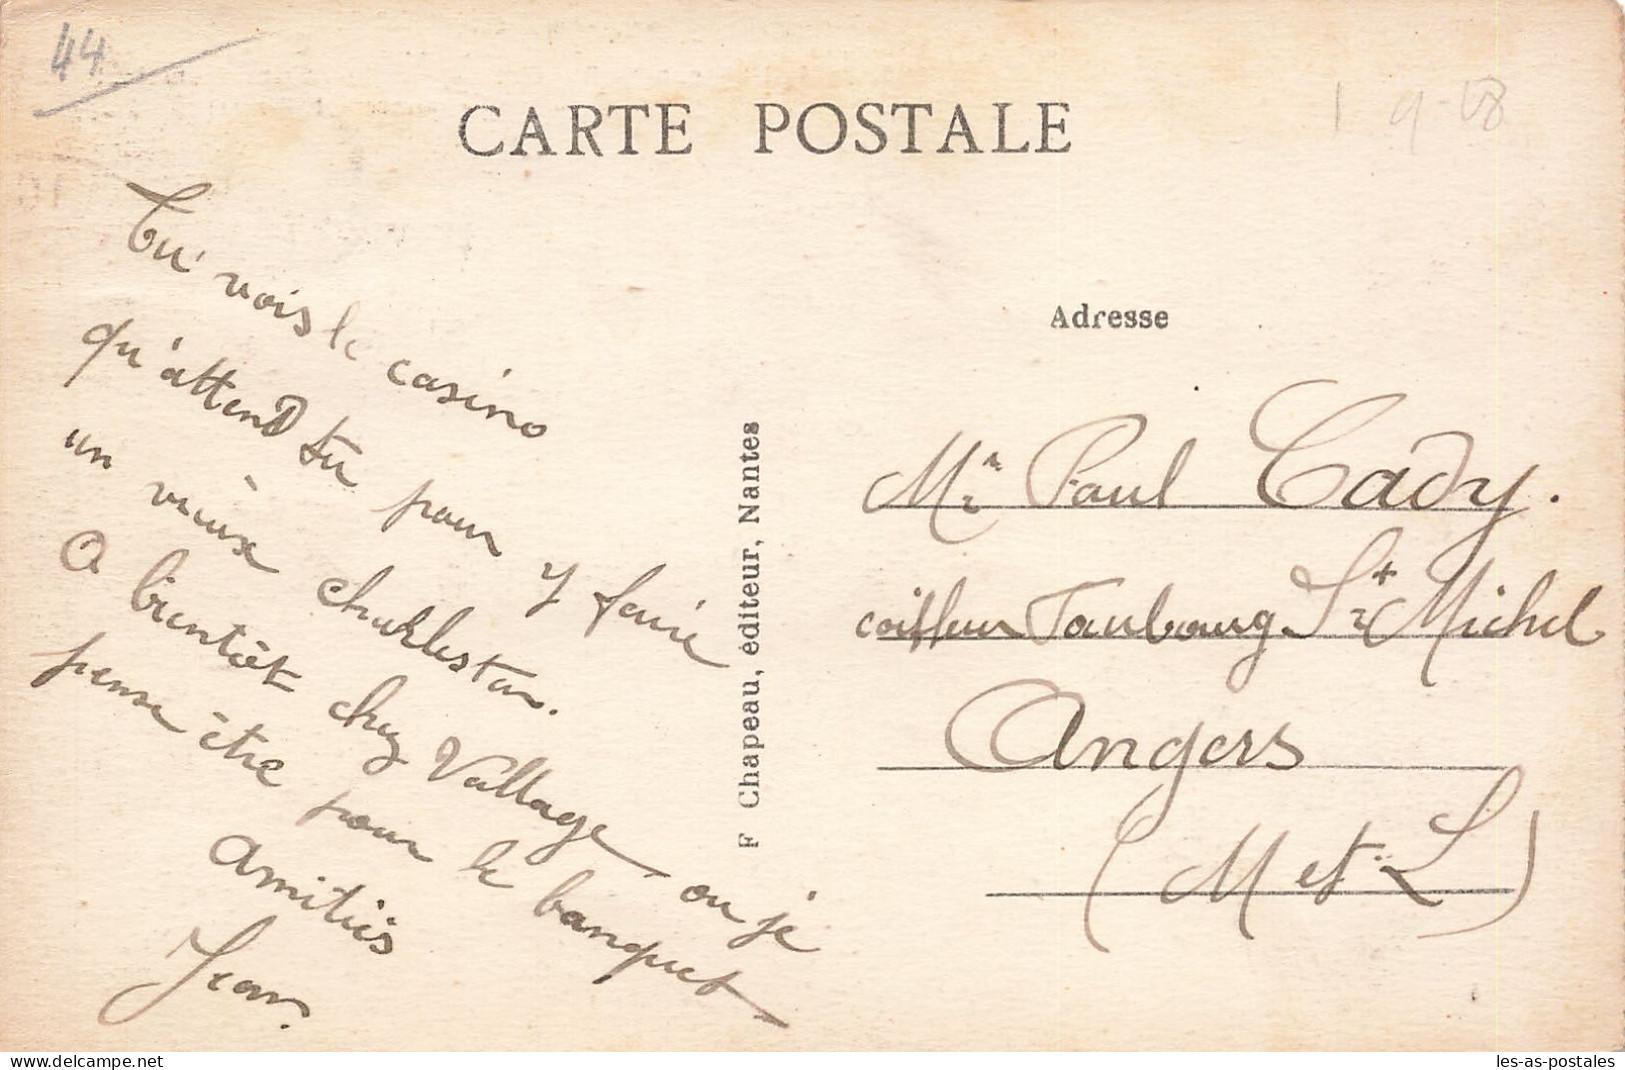 44
CARTE POSTALE
Tu vois le casino
qu'attend tu pour y faire
un vieux charleston.
A bientôt chez Vallage ou je
pense être pour le banquet
Amitiés
Jean.
F Chapeau, éditeur, Nantes
Adresse
Mr Paul Cady.
coiffeur Faubourg St Michel
Angers
(M et L)
les-as-postales
delcampe.net